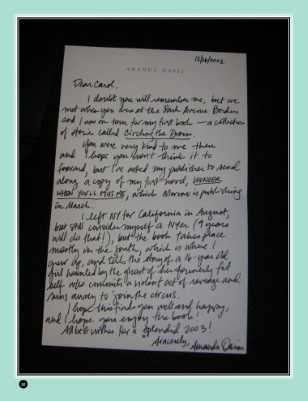 12/16/2002
AMANDA DAVIS
Dear Carol,
I doubt you will remember me, but we
met when you were at the Park Avenue Borders
and I was on tour for my first book — a collection
of stories called Circling the Drain.
You were very kind to me then
and I hope you won't think it to
forward, but I've asked my publisher to send
along a copy of my first novel, WONDER
WHEN YOU'LL MISS ME, which Morrow is publishing
in March.
I left NY for California in August,
but still consider myself a NYer (9 years
will do that!), but the book takes place
mostly in the South, which is where I
grew up, and tells the story of a 16-year old
girl haunted by the ghost of her formerly fat
self who commits a violent act of revenge and
runs away to join the circus.
I hope this finds you well and happy,
and I hope you enjoy the book!
All best wishes for a splendid 2003!
Sincerely,
Amanda Davis